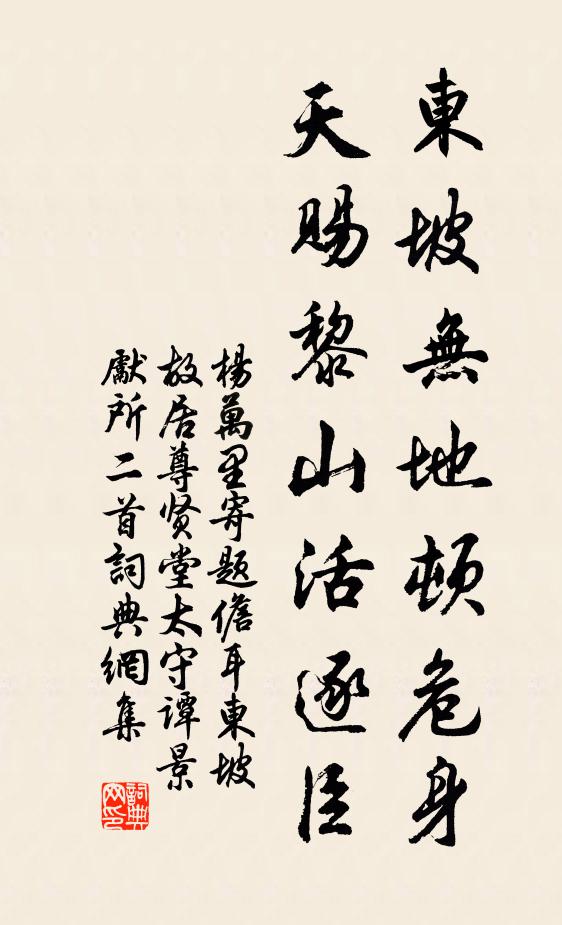 東坡無地頓危身
天賜黎山活逐臣
楊萬里寄題儋耳東坡
故居尊贤堂太守谭景
獻所二首詞典網集
詞典网印